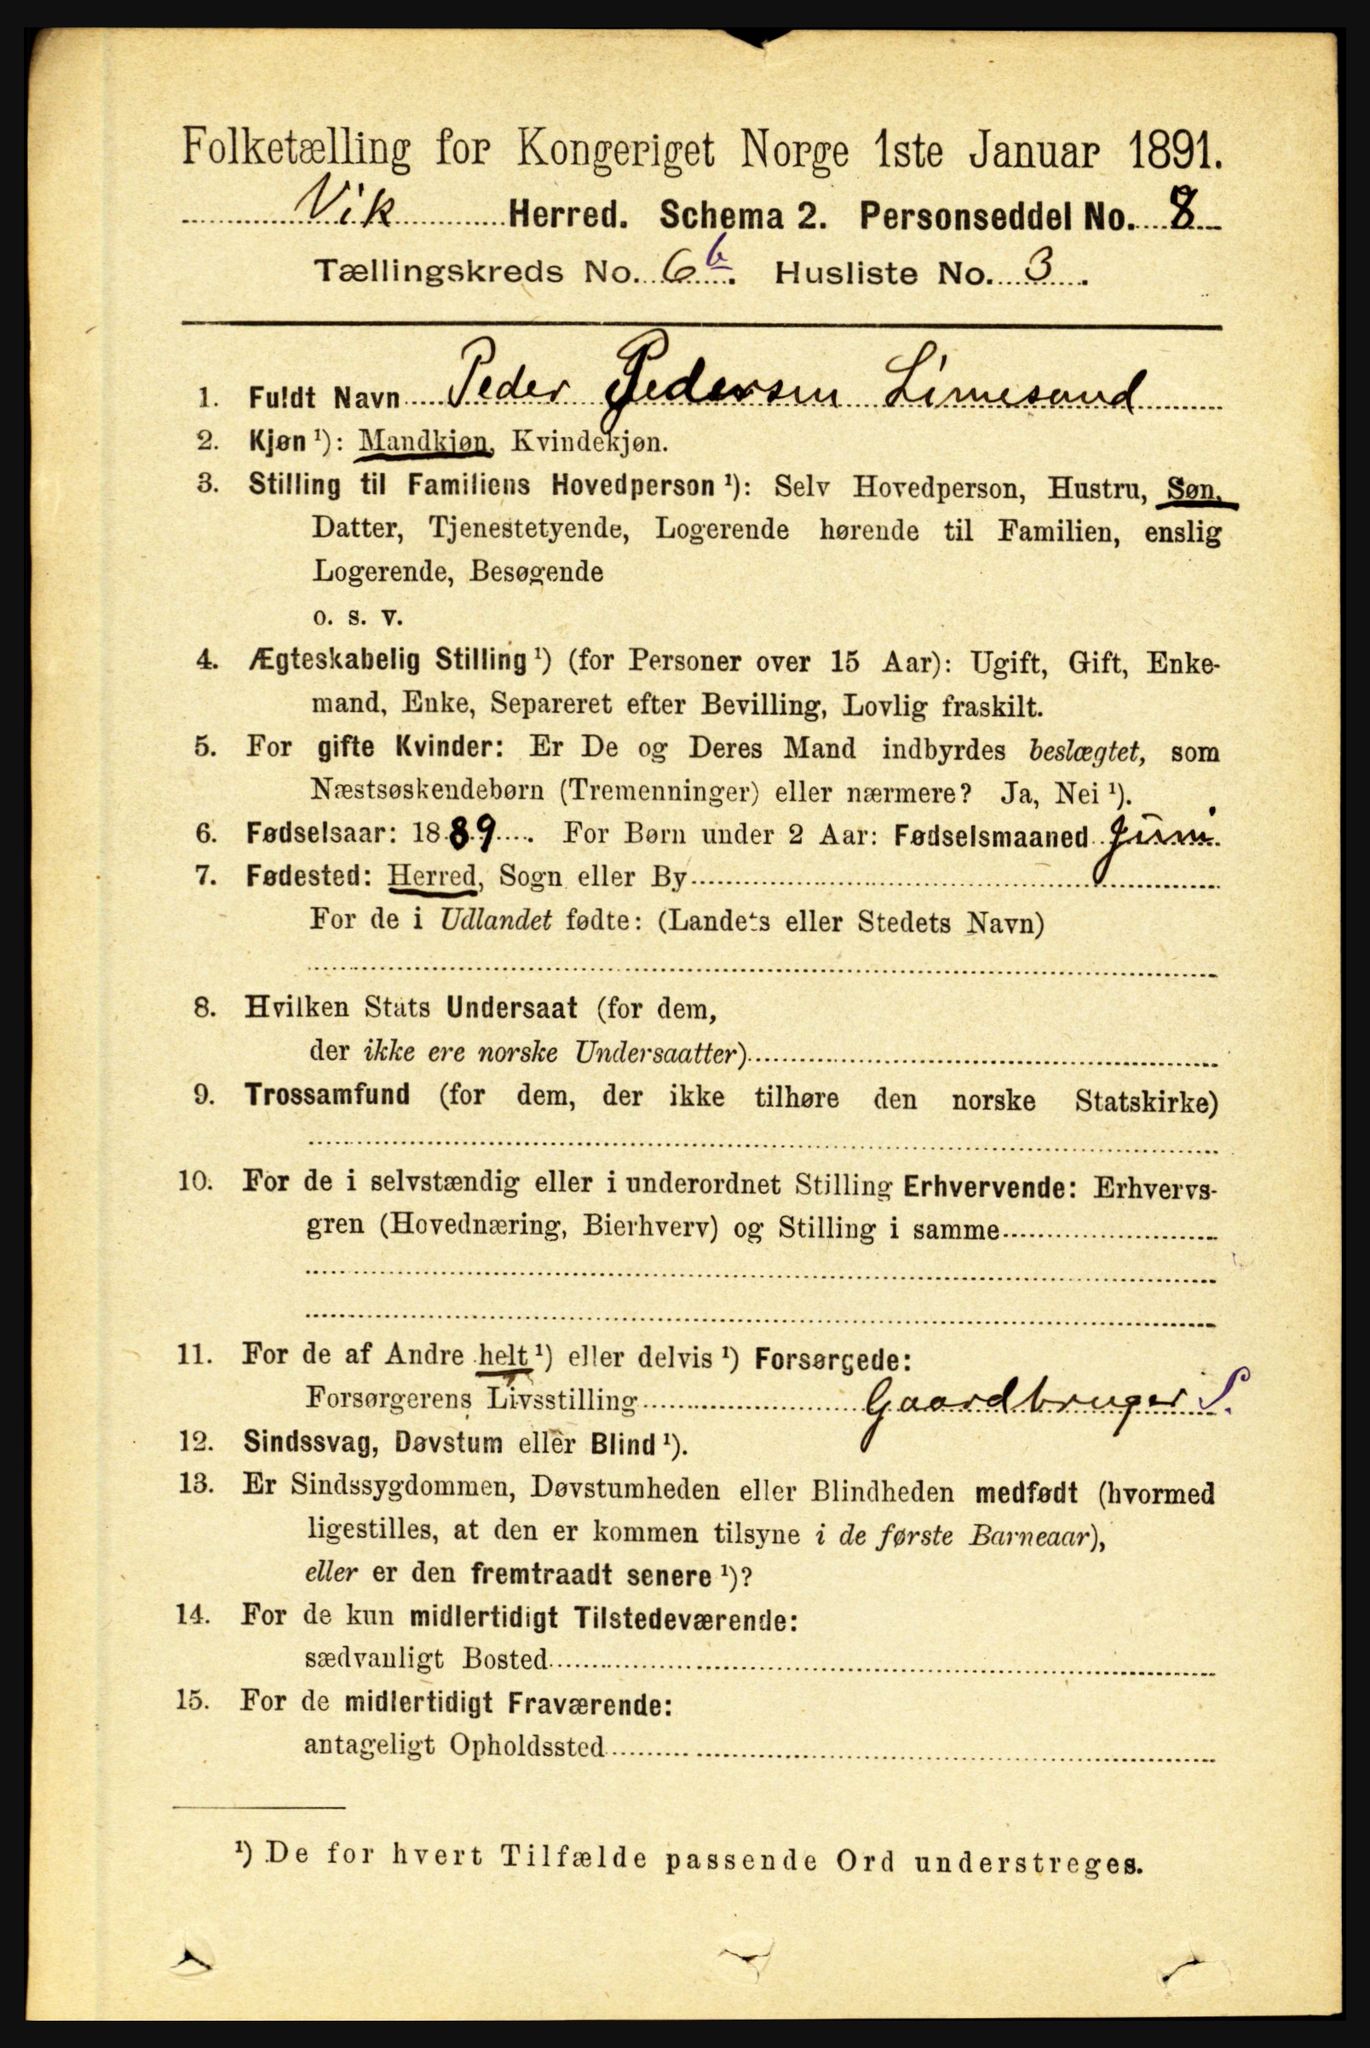 Folketælling for Kongeriget Norge 1ste Januar 1891.
Vik Herred. Schema 2. Personseddel No. 8
Tællingskreds No. 6 b. Husliste No. 3.
1. Fuldt Navn Peder Pedersen Limesand
2. Kjøn ¹): Mandkjøn, Kvindekjøn.
3. Stilling til Familiens Hovedperson ¹): Selv Hovedperson, Hustru, Søn,
Datter, Tjenestetyende, Logerende hørende til Familien, enslig
Logerende, Besøgende
o. s. v.
4. Ægteskabelig Stilling ¹) (for Personer over 15 Aar): Ugift, Gift, Enke-
mand, Enke, Separeret efter Bevilling, Lovlig fraskilt.
5. For gifte Kvinder: Er De og Deres Mand indbyrdes beslægtet, som
Næstsøskendebørn (Tremenninger) eller nærmere? Ja, Nei ¹).
6. Fødselsaar: 1889. For Børn under 2 Aar: Fødselsmaaned Juni.
7. Fødested: Herred, Sogn eller By
For de i Udlandet fødte: (Landets eller Stedets Navn)
8. Hvilken Stats Undersaat (for dem,
der ikke ere norske Undersaatter)
9. Trossamfund (for dem, der ikke tilhøre den norske Statskirke)
10. For de i selvstændig eller i underordnet Stilling Erhvervende: Erhvervs-
gren (Hovednæring, Bierhverv) og Stilling i samme
11. For de af Andre helt ¹) eller delvis ¹) Forsørgede:
Forsørgerens Livsstilling Gaardbruger S.
12. Sindssvag, Døvstum eller Blind ¹).
13. Er Sindssygdommen, Døvstumheden eller Blindheden medfødt (hvormed
ligestilles, at den er kommen tilsyne i de første Barneaar),
eller er den fremtraadt senere ¹)?
14. For de kun midlertidigt Tilstedeværende:
sædvanligt Bosted
15. For de midlertidigt Fraværende:
antageligt Opholdssted
¹) De for hvert Tilfælde passende Ord understreges.